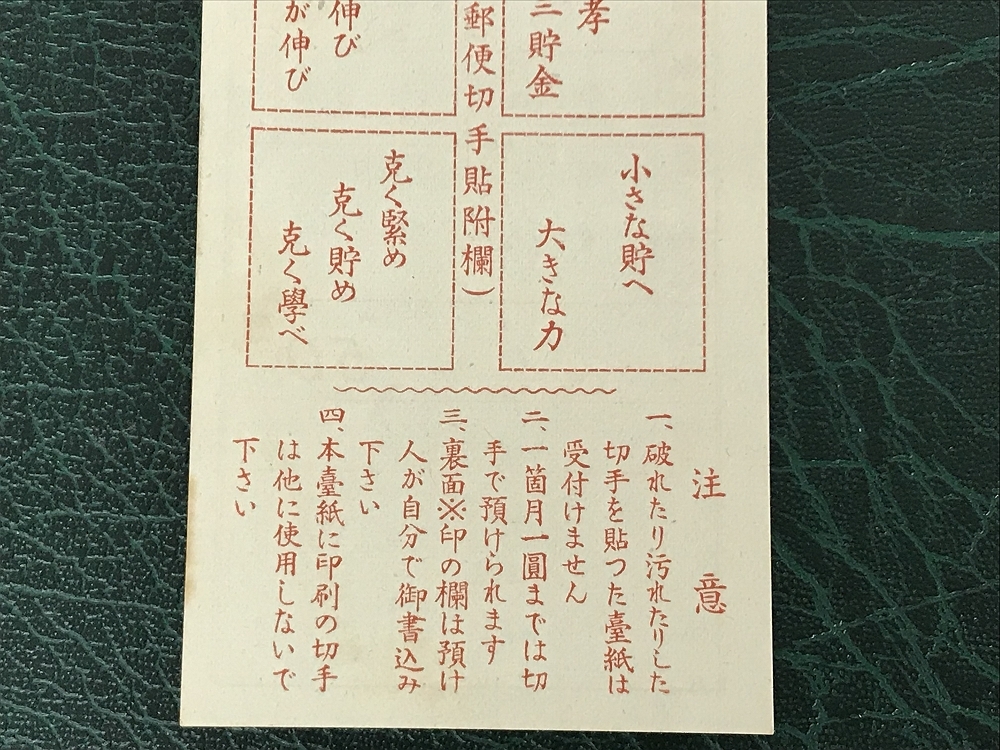 孝
二貯金
郵便切手貼附欄）
伸び
が伸び
小さな貯へ
大きな力
克く緊め
克く貯め
克く學べ
注意
一、破れたり汚れたりした
切手を貼つた臺紙は
受付けません
二、一箇月一圓までは切
手で預けられます
三、裏面※印の欄は預け
人が自分で御書込み
下さい
四、本臺紙に印刷の切手
は他に使用しないで
下さい